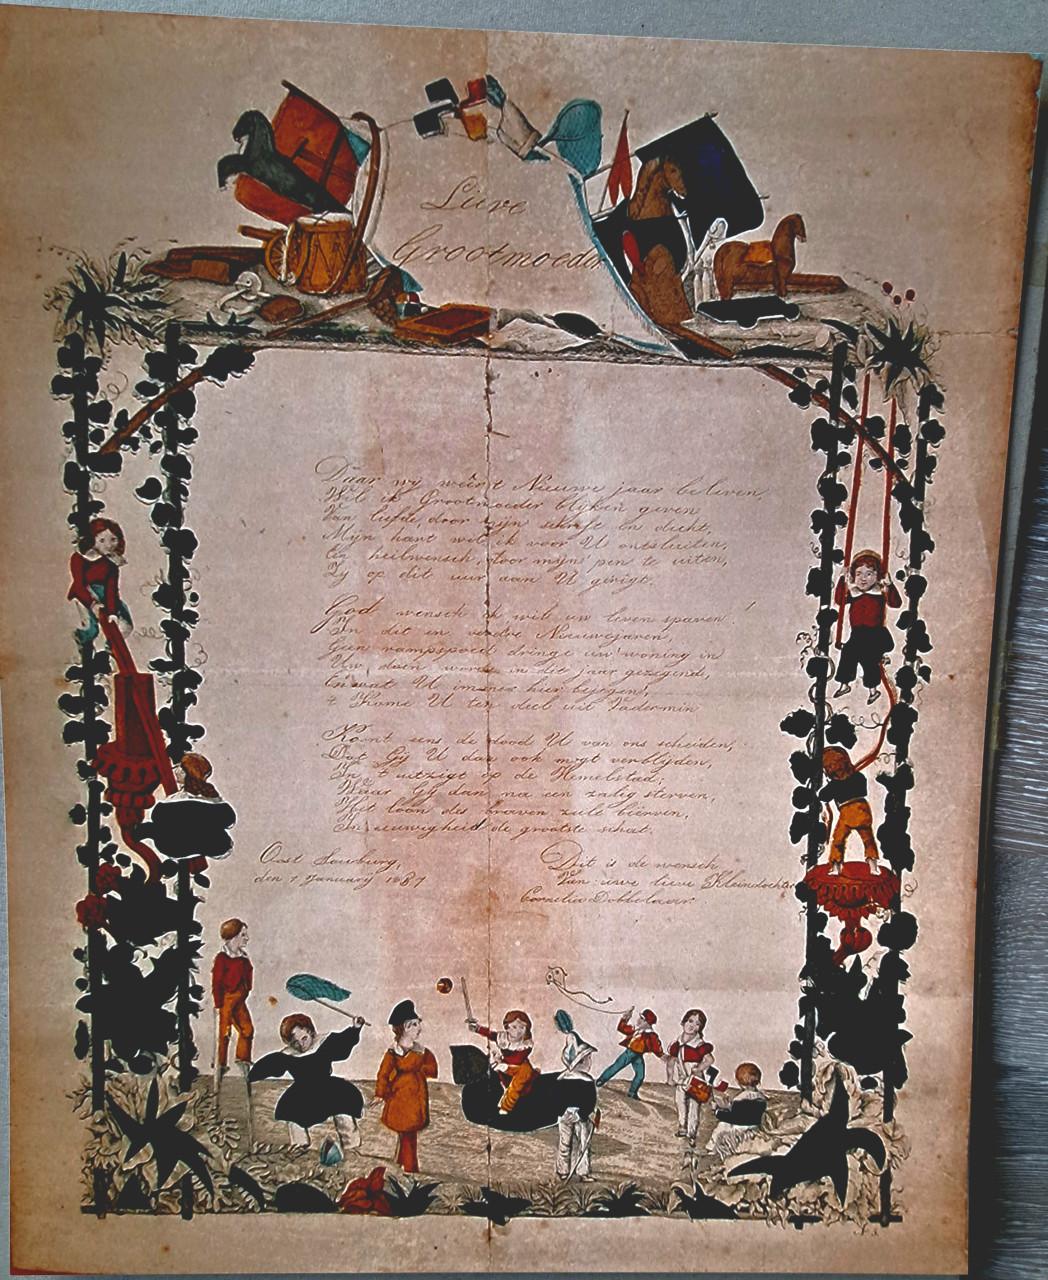 Lieve
Grootmoeder
Daar wy weêr 't Nieuwe jaar beleven
Wil ik Grootmoeder blijken geven
Van liefde, door mijn schrift en dicht,
Mijn hart wil ik voor U ontsluiten,
En heilwensch door mijn pen te uiten,
Zij op dit uur aan U gerigt.
God wensch ik wil uw leven sparen!
In dit en verdre Nieuwejaren,
Geen rampspoed dringe uw woning in
Uw doen worde in dit jaar gezegend,
En wat U immer hier bejegen,
't Kome U ten deel uit Vadermin
Komt eens de dood U van ons scheiden,
Dat Gij U dan ook mogt verblijden,
In 't uitzigt op de Hemelstad;
Waar Gij dan na een zalig sterven,
Het loon des braven zult beërven,
In eeuwigheid de grootste schat.
Oost Souburg,
den 1 Januarij 1887
Dit is de wensch
Van uwe lieve Kleindochter
Cornelia Dobbelaer